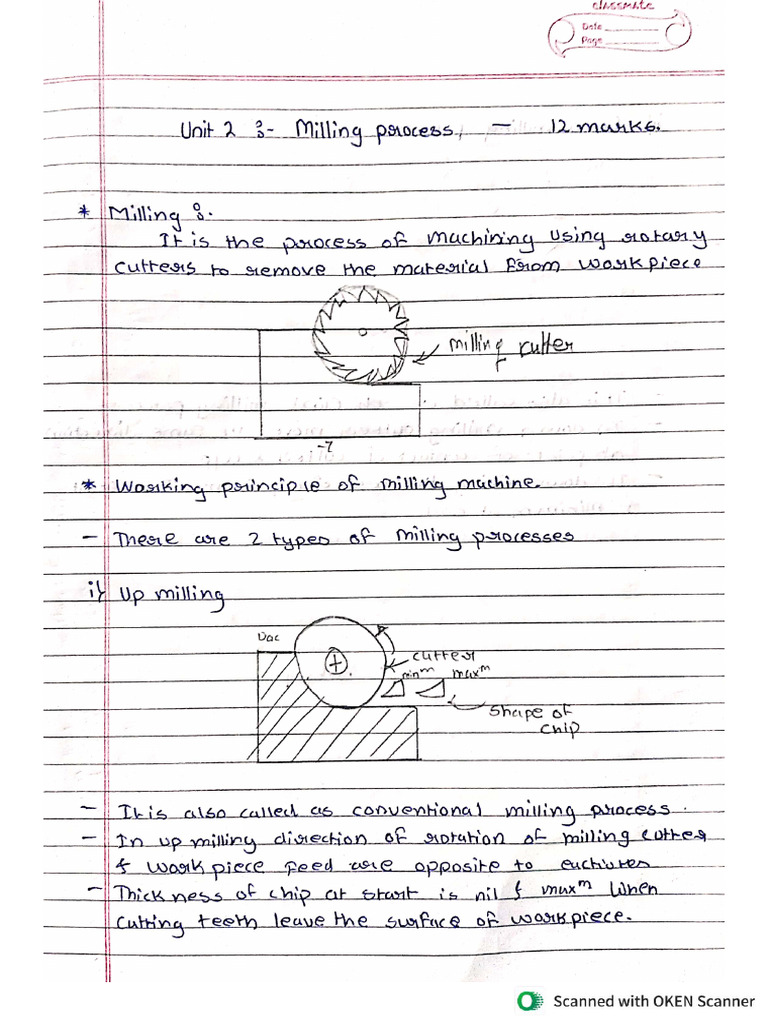 classmate
Date
Page
Unit 2 :- Milling process. — 12 marks.
* Milling :-
It is the process of machining using rotary
cutters to remove the material from workpiece
milling cutter
* Working principle of milling machine.
- There are 2 types of milling processes
i) Up milling
Doc
cutter
minᵐ maxᵐ
shape of
chip
- It is also called as conventional milling process.
- In up milling direction of rotation of milling cutter
& work piece feed are opposite to eachother
- Thickness of chip at start is nil & maxᵐ when
cutting teeth leave the surface of workpiece.
Scanned with OKEN Scanner